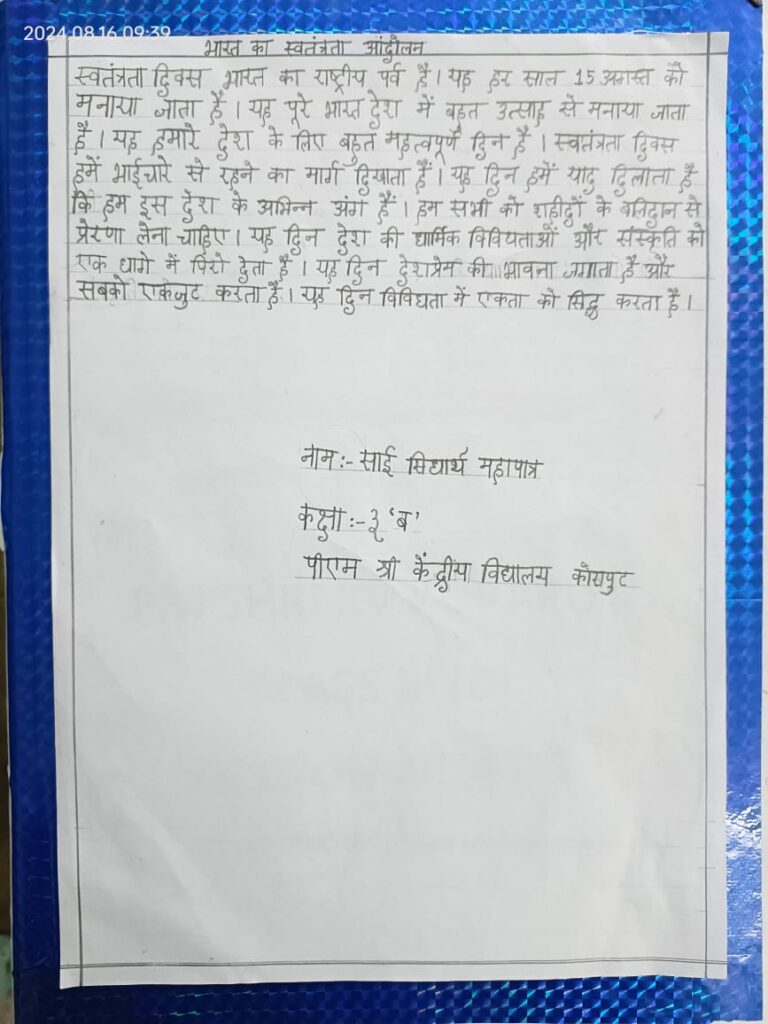 2024.08.16 09:39
भारत का स्वतंत्रता आंदोलन
स्वतंत्रता दिवस भारत का राष्ट्रीय पर्व है। यह हर साल 15 अगस्त को
मनाया जाता है। यह पूरे भारत देश में बहुत उत्साह से मनाया जाता
है। यह हमारे देश के लिए बहुत महत्वपूर्ण दिन है। स्वतंत्रता दिवस
हमें भाईचारे से रहने का मार्ग दिखाता है। यह दिन हमें याद दिलाता है
कि हम इस देश के अभिन्न अंग हैं। हम सभी को शहीदों के बलिदान से
प्रेरणा लेना चाहिए। यह दिन देश की धार्मिक विविधताओं और संस्कृति को
एक धागे में पिरो देता है। यह दिन देशप्रेम की भावना जगाता है और
सबको एकजुट करता है। यह दिन विविधता में एकता को सिद्ध करता है।
नाम:- साई सिधार्थ महापात्र
कक्षा:- ३ 'ब'
पीएम श्री केंद्रीय विद्यालय कोरापुट